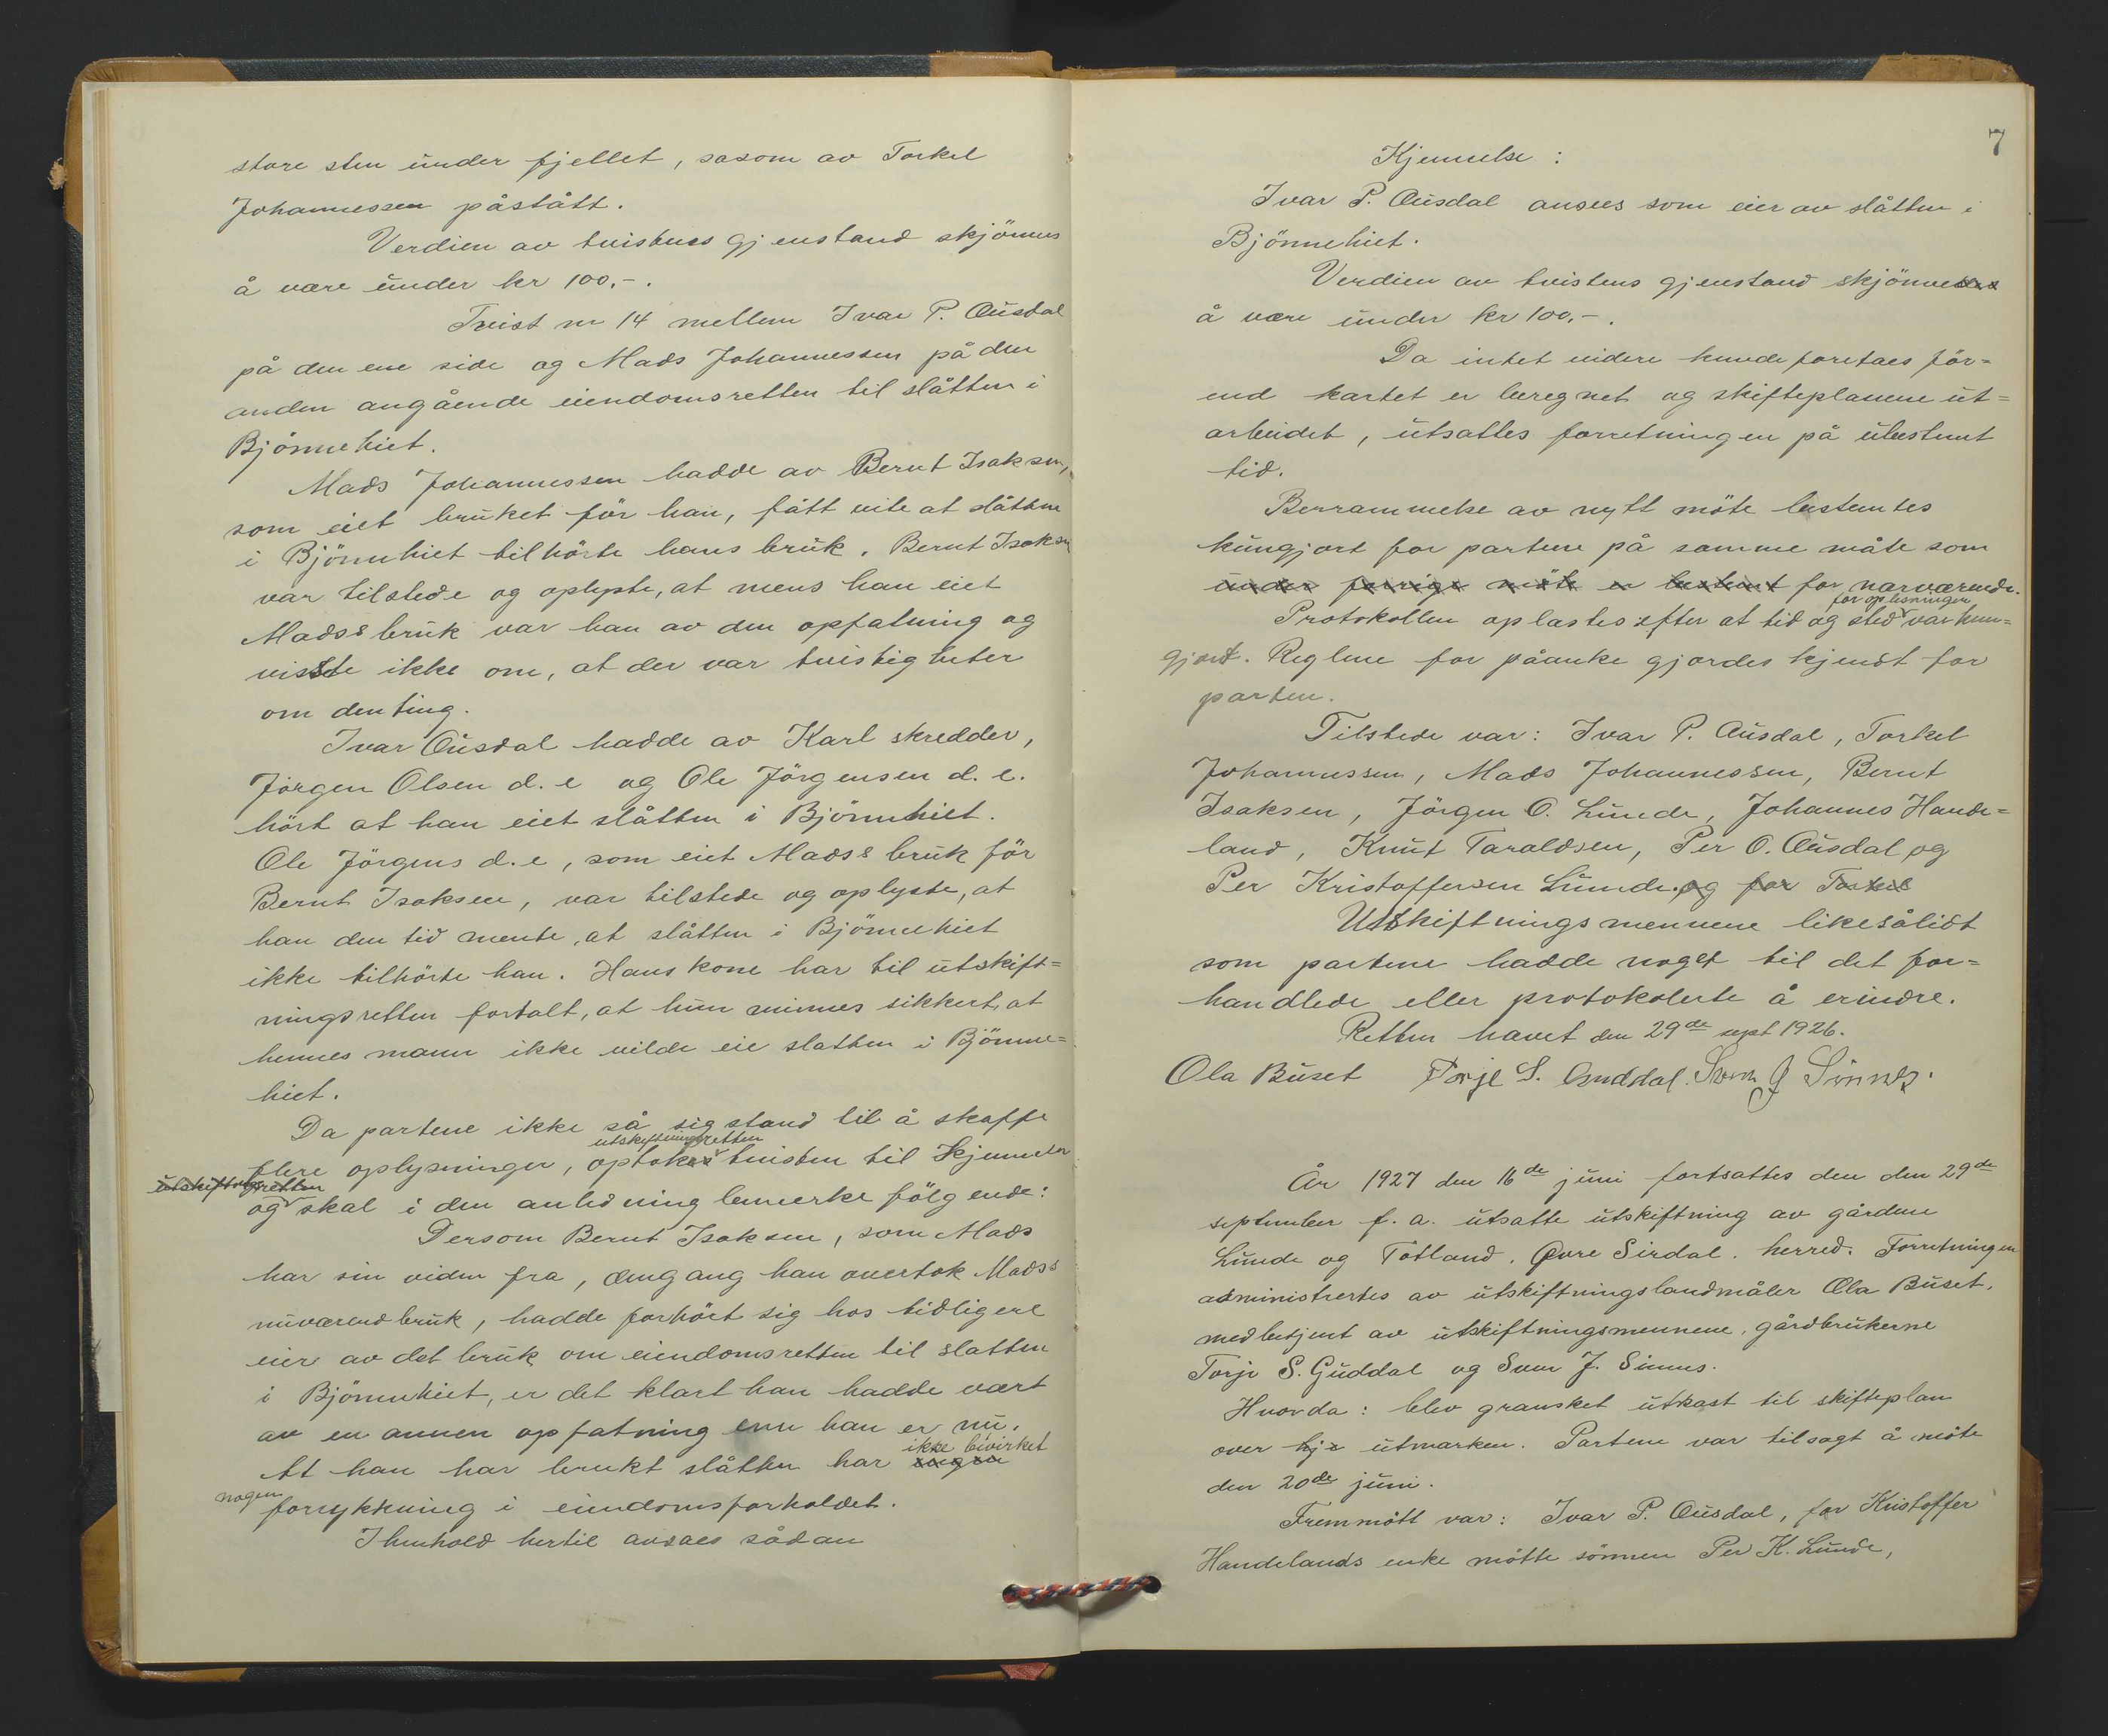 store sten under fjellet, sasom av Torkel
Johannessen påstått.
Verdien av tvistens gjenstand skjönnes
å være under kr 100,-.
Tvist nr 14 mellem Ivar P. Ousdal
på den ene side og Mads Johannessen på den
anden angående eiendomsretten til slåtten i
Bjönnehiet.
Mads Johannessen hadde av Bernt Isaksen,
som eiet bruket för han, fått vite at slåtten
i Bjönnhiet tilhörte hans bruk. Bernt Isaksen
var tilstede og oplyste, at mens han eiet
Madss bruk var han av den opfatning og
visste ikke om, at der var tvistigheter
om den ting.
Ivar Ousdal hadde av Karl skredder,
Jörgen Olsen d. e og Ole Jörgensen d. e.
hört at han eiet slåtten i Bjönnhiet.
Ole Jörgens d. e, som eiet Madss bruk för
Bernt Isaksen, var tilstede og oplyste, at
han den tid mente, at slåtten i Bjönnehiet
ikke tilhörte han. Hans kone har til utskift=
ningsretten fortalt, at hun minnes sikkert, at
hennes mann ikke vilde eie slatten i Bjönne=
hiet.
Da partene ikke så sig stand til å skaffe
utskiftningsretten
flere oplysninger, optok tvisten til kjennelse
utskiftningsretten
og skal i den anledning bemerke fölgende:
Dersom Bernt Isaksen, som Mads
har sin viden fra, dengang han overtok Madss
nuværend bruk, hadde forhört sig hos tidligere
eier av det bruk om eiendomsretten til slatten
i Bjönnehiet, er det klart han hadde vært
av en annen opfatning enn han er nu.
ikke bivirket
At han har brukt slåtten har ingen
nogen forrykkning i eiendomsforholdet.
I henhold hertil avsaes sådan
7
Kjennelse:
Ivar P. Ousdal ansees som eier av slåtten i
Bjönnehiet.
Verdien av tvistens gjenstand skjönnes
å være under kr 100,-.
Da intet videre kunde foretaes för=
end kartet er beregnet og skifteplanene ut=
arbeidet, utsattes forretningen på ubestemt
tid.
Berrammelse av nytt möte bestemtes
kungjort for partene på samme måte som
under forrige möte er bestemt for nærværende.
for oplesningen
Protokollen oplæstes efter at tid og sted var kun=
gjort. Reglene for påanke gjordes kjendt for
parten.
Tilstede var: Ivar P. Ausdal, Torkel
Johannessen, Mads Johannessen, Bernt
Isaksen, Jörgen O. Lunde, Johannes Hande=
land, Knut Taraldsen, Per O. Ousdal og
Per Kristoffersen Lunde. og for Torkel
Utskiftningsmennene likesålidt
som partene hadde noget til det for=
handlede eller protokolerte å erindre.
Retten hævet den 29de sept 1926.
Ola Buset Torje S. Guddal. Sven J Sinnes.
År 1927 den 16de juni fortsattes den den 29de
september f. a. utsatte utskiftning av gårdene
Lunde og Totland. Övre Sirdal. herred. Forretningen
administrertes av utskiftningslandmåler Ola Buset.
medbetjent av utskiftningsmennene, gårdbrukerne
Torje S. Guddal og Sven J. Sinnes.
Hvorda: blev gransket utkast til skifteplan
over hje utmarken. Partene var tilsagt å möte
den 20de juni.
Fremmött var: Ivar P. Ousdal, for Kristoffer
Handelands enke mötte sönnen Per K. Lunde,